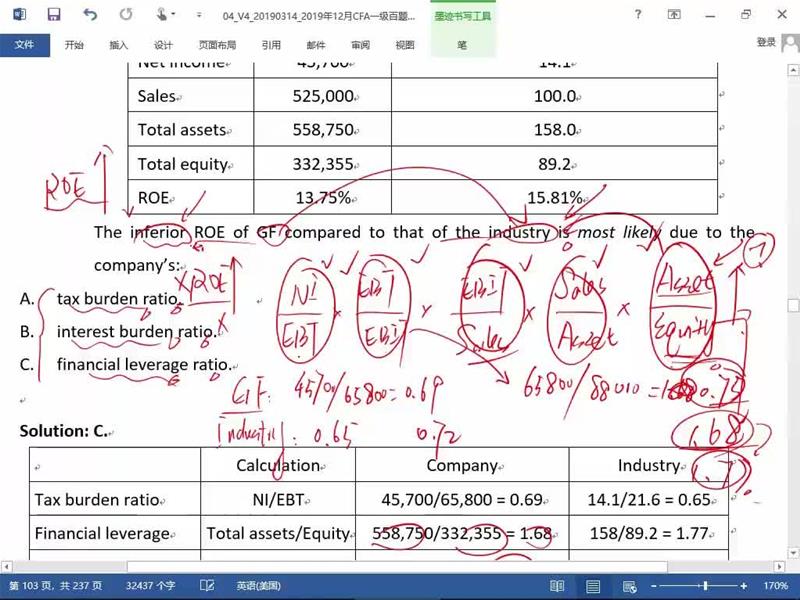 04_V4_20190314_2019年12月CFA一级百题...
墨迹书写工具
文件 开始 插入 设计 页面布局 引用 邮件 审阅 视图 笔 登录
Net income 45,700 14.1
Sales 525,000 100.0
Total assets 558,750 158.0
Total equity 332,355 89.2
ROE 13.75% 15.81%
ROE
The inferior ROE of GF compared to that of the industry is most likely due to the
company's:
A. tax burden ratio.
B. interest burden ratio.
C. financial leverage ratio.
ROE
NI/EBT × EBT/EBIT × EBIT/Sales × Sales/Asset × Asset/Equity
GF: 45700/65800=0.69 65800/88010= 0.75
Industry: 0.65 0.72
1.68
1.77
Solution: C.
Calculation Company Industry
Tax burden ratio NI/EBT 45,700/65,800 = 0.69 14.1/21.6 = 0.65
Financial leverage Total assets/Equity 558,750/332,355 = 1.68 158/89.2 = 1.77
第 103 页，共 237 页 32437 个字 英语(美国) 170%